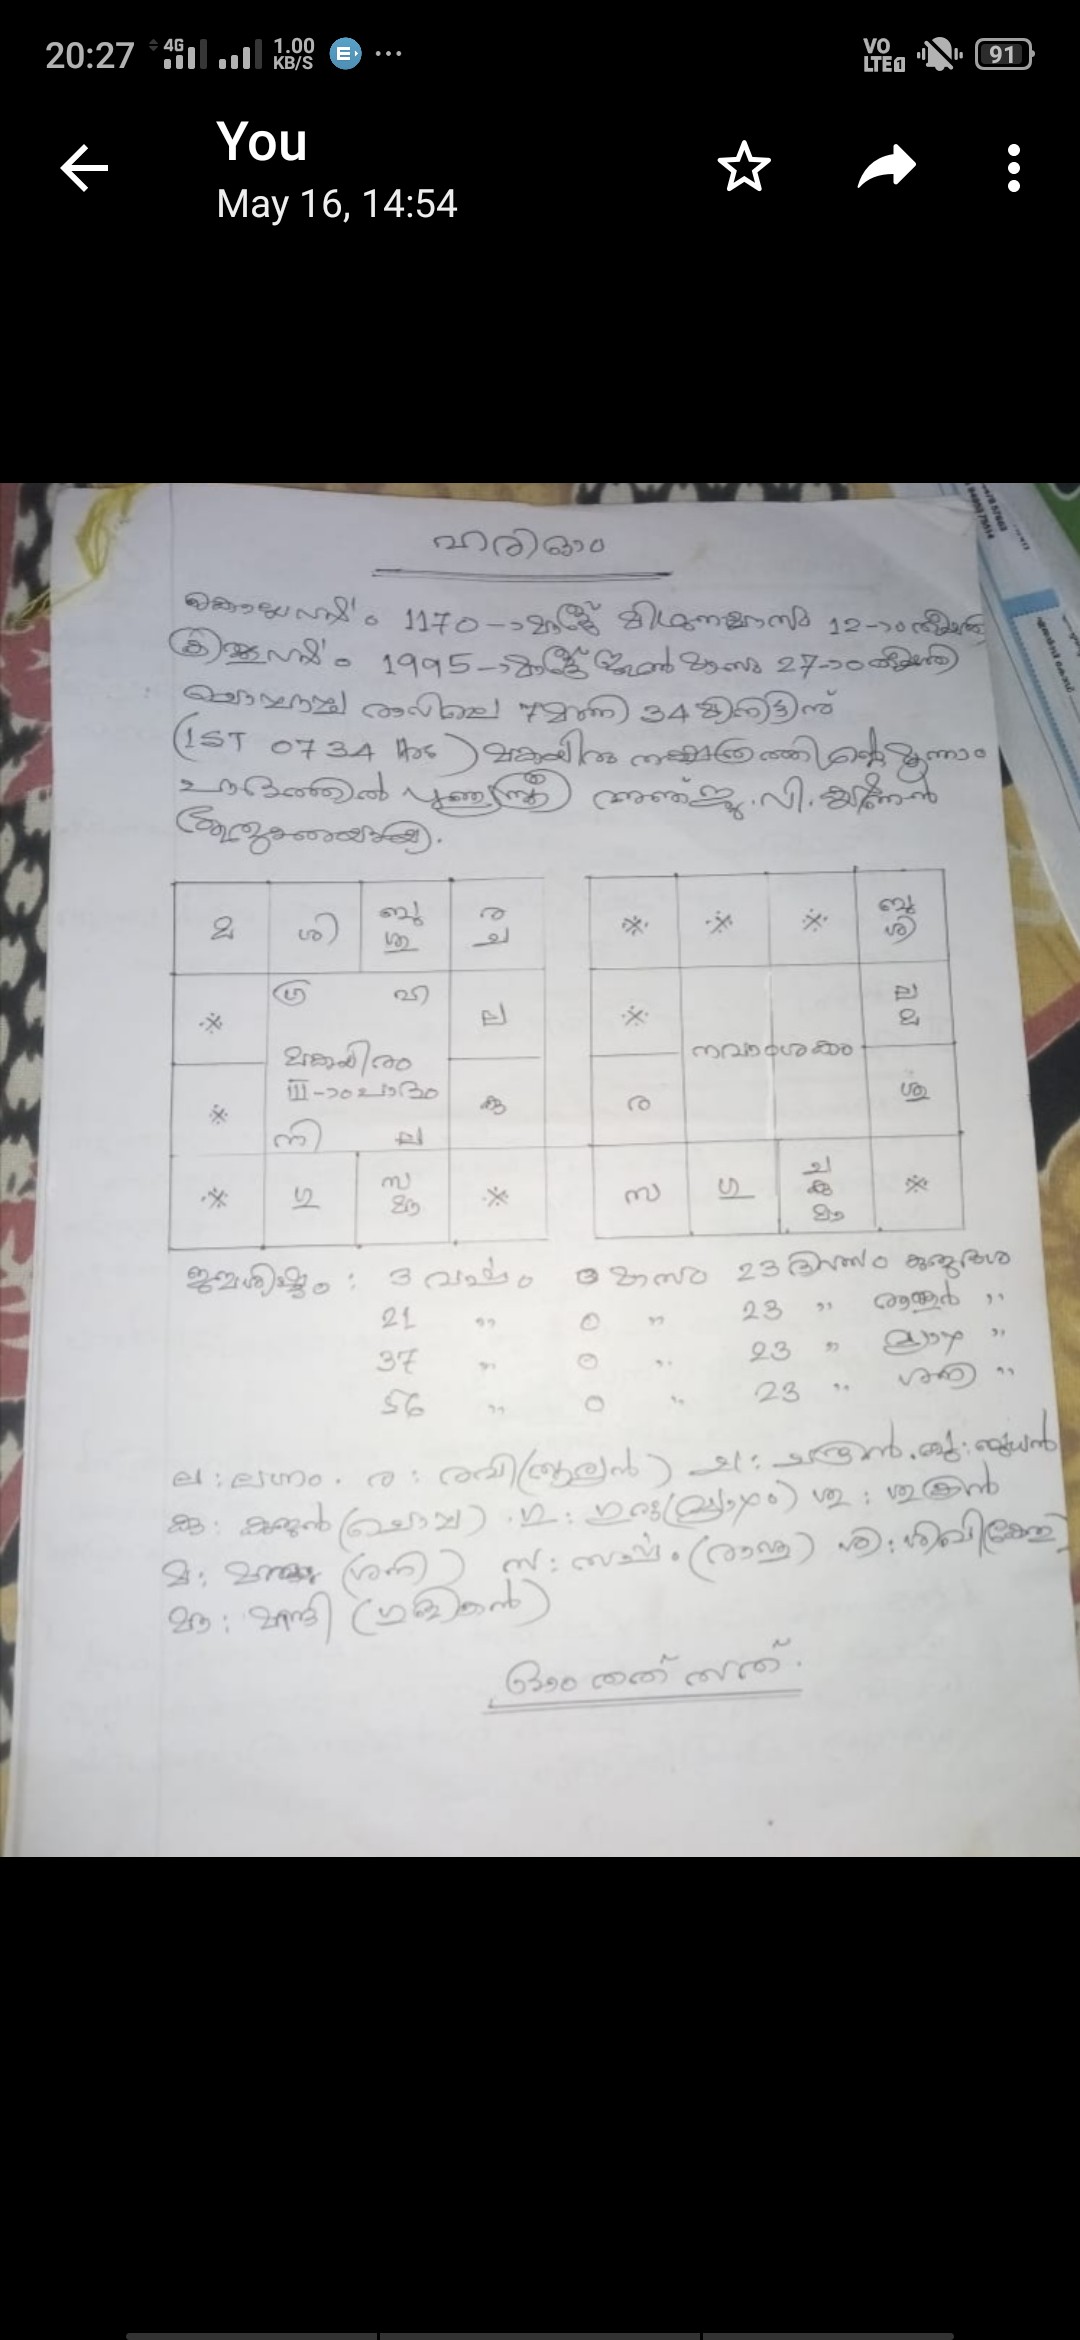 20:27 4G 1.00 KB/S E ... VO LTE1 91
You
May 16, 14:54
ഹരിഓം
കൊല്ലവർഷം 1170-ാമാണ്ട് മിഥുനമാസം 12-ാം തീയതി
ക്രിസ്തുവർഷം 1995-ാമാണ്ട് ജൂൺ മാസം 27-ാം തീയതി
ചൊവ്വാഴ്ച രാവിലെ 7മണി 34 മിനിട്ടിന്
(IST 0734 Hrs) മകയിരം നക്ഷത്രത്തിന്റെ മൂന്നാം
പാദത്തിൽ അഞ്ജു.വി.
മ ശി ബു ശു ര ച
※ ഗ്ര ഹ ല
മകയിരം
III-ാംപാദം
※ നി ല കു
※ ഗു സ മാ ※
※ ※ ※ ബു ശി
※ നവാംശകം ല മ
ര ശു
സ ഗു ച കു മാ ※
ജനശിഷ്ടം : 3 വർഷം 0 മാസം 23 ദിവസം കുജദശ
21 " 0 " 23 " രാഹുർ "
37 " 0 " 23 " വ്യാഴ "
56 " 0 " 23 " ശനി "
ല : ലഗ്നം . ര : രവി(സൂര്യൻ) ച : ചന്ദ്രൻ . ബു : ബുധൻ
കു : കുജൻ (ചൊവ്വ) . ഗു : ഗുരു(വ്യാഴം) ശു : ശുക്രൻ
മ : മന്ദൻ (ശനി) സ : സർപ്പം (രാഹു) ശി : ശിഖി(കേതു)
മാ : മാന്ദി (ഗുളികൻ)
ഓം തത് സത്.